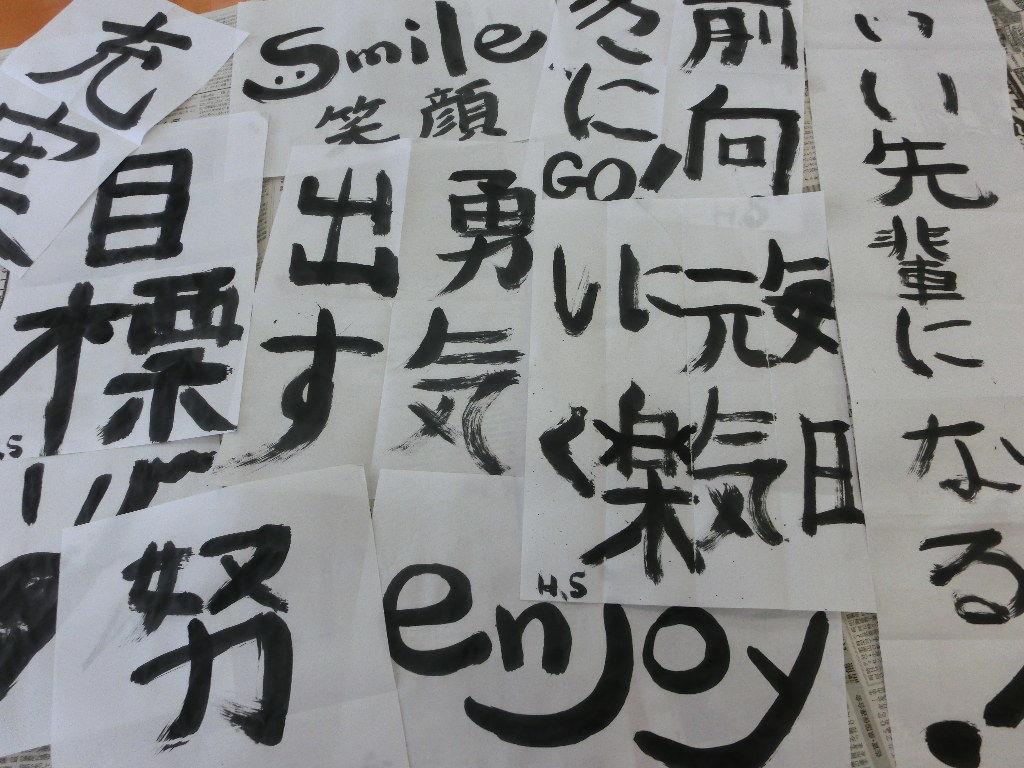 いい先輩になる!
前向
きにGO!
Smile
笑顔
充
実
目標
勇気
出す
毎日
元気
に楽
しく
努
enjoy
H.S